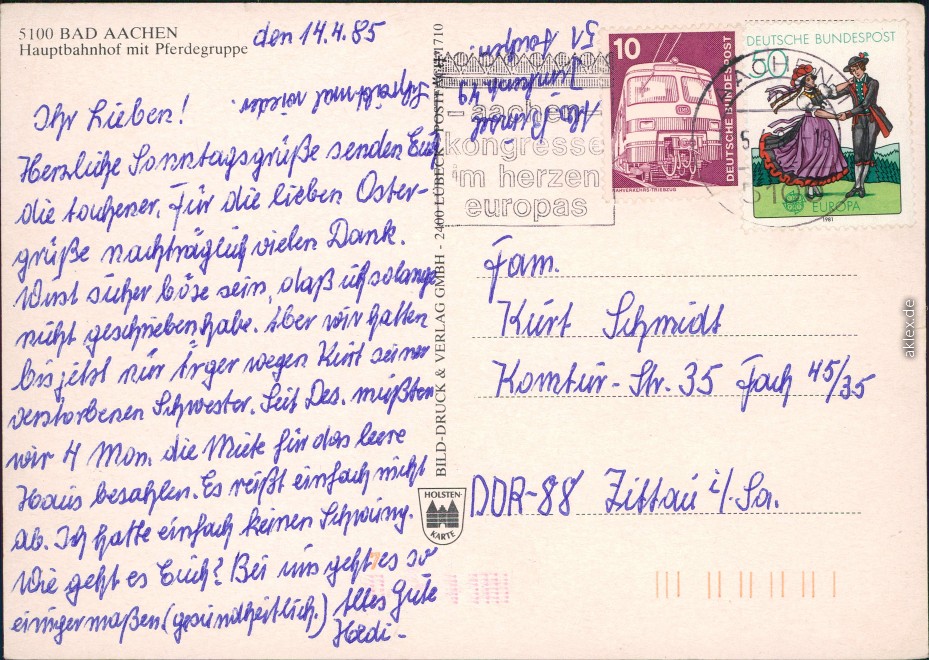 5100 BAD AACHEN
Hauptbahnhof mit Pferdegruppe
den 14.4.85
Ihr Lieben!
Herzliche Sonntagsgrüße senden Euch
die Aachener. Für die lieben Oster-
grüße nachträglich vielen Dank.
Wirst sicher böse sein, daß ich solange
nicht geschrieben habe. Aber wir hatten
bis jetzt nur Ärger wegen Kurt seiner
verstorbenen Schwester. Seit Des. mußten
wir 4 Mon. die Miete für das leere
Haus bezahlen. Es reißt einfach nicht
ab. Ich hatte einfach keinen Schwung.
Wie geht es Euch? Bei uns geht es so
einigermaßen (gesundheitlich.) Alles Gute
Hedi -
Schreib mal wieder.
51 Aachen
BILD-DRUCK & VERLAG GMBH - 2400 LÜBECK - POSTFACH 1710
HOLSTEN-
KARTE
- aachen -
kongresse
im herzen
europas
10
DEUTSCHE BUNDESPOST
NAHVERKEHRS-TRIEBZUG
DEUTSCHE BUNDESPOST
50
EUROPA
1981
Fam.
Kurt Schmidt
Komtur-Str. 35 Fach 45/35
DDR-88 Zittau i/Sa.
aklex.de